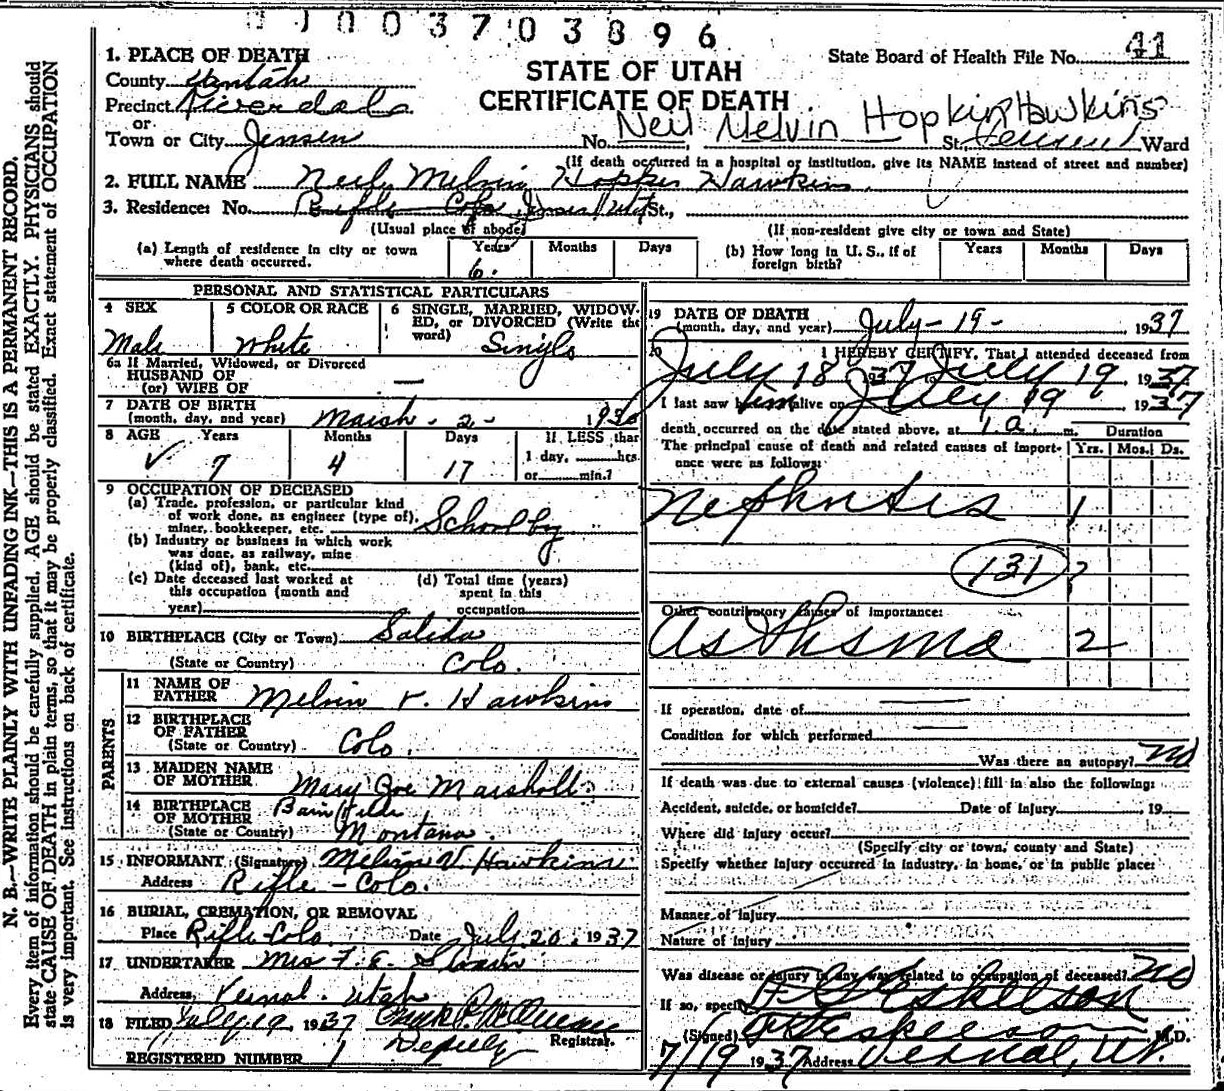 003703896
State Board of Health File No. 41
STATE OF UTAH
CERTIFICATE OF DEATH
1. PLACE OF DEATH
County Uintah
Precinct Riverdale
or
Town or City Jensen No. Neil Melvin Hopkin Hawkins St. Ward
(If death occurred in a hospital or institution, give its NAME instead of street and number)
2. FULL NAME Neil Melvin Hawkins
3. Residence: No. Rifle Colo Jensen Utah St.,
(Usual place of abode) (If non-resident give city or town and State)
(a) Length of residence in city or town where death occurred. Years 6. Months Days
(b) How long in U. S., if of foreign birth? Years Months Days
PERSONAL AND STATISTICAL PARTICULARS
4 SEX Male
5 COLOR OR RACE White
6 SINGLE, MARRIED, WIDOWED, or DIVORCED (Write the word) Single
6a If Married, Widowed, or Divorced
HUSBAND OF
(or) WIFE OF —
7 DATE OF BIRTH
(month, day, and year) March - 2 - 1930
8 AGE Years 7 Months 4 Days 17 If LESS than 1 day, hrs. or min.?
9 OCCUPATION OF DECEASED
(a) Trade, profession, or particular kind
of work done, as engineer (type of),
miner, bookkeeper, etc. School boy
(b) Industry or business in which work
was done, as railway, mine
(kind of), bank, etc.
(c) Date deceased last worked at
this occupation (month and
year)
(d) Total time (years)
spent in this
occupation
10 BIRTHPLACE (City or Town) Salida
(State or Country) Colo.
PARENTS
11 NAME OF
FATHER Melvin V. Hawkins
12 BIRTHPLACE
OF FATHER
(State or Country) Colo.
13 MAIDEN NAME
OF MOTHER Mary Joe Marshall
14 BIRTHPLACE
OF MOTHER
(State or Country) Montana.
15 INFORMANT (Signature) Melvin V. Hawkins
Address Rifle - Colo.
16 BURIAL, CREMATION, OR REMOVAL
Place Rifle Colo. Date July 20, 1937
17 UNDERTAKER Mrs F. E.
Address, Vernal - Utah
18 FILED July 19, 1937 Registrar.
Deputy
REGISTERED NUMBER 1
19 DATE OF DEATH
(month, day, and year) July - 19 - 1937
20 I HEREBY CERTIFY, That I attended deceased from
July 18 1937 to July 19 1937
I last saw him alive on July 19 1937
death occurred on the date stated above, at 1 a. m. Duration
The principal cause of death and related causes of importance were as follows: Yrs. Mos. Ds.
Nephritis 1
131 ?
Other contributory causes of importance:
Asthsma 2
If operation, date of —
Condition for which performed —
Was there an autopsy? No
If death was due to external causes (violence) fill in also the following:
Accident, suicide, or homicide? Date of injury 19
Where did injury occur?
(Specify city or town, county and State)
Specify whether injury occurred in industry, in home, or in public place:
Manner of injury
Nature of injury
Was disease or injury in any way related to occupation of deceased? No
If so, specify
(Signed) Eskelson M.D.
7/19 1937 Address Vernal, Ut.
N. B.—WRITE PLAINLY WITH UNFADING INK—THIS IS A PERMANENT RECORD.
Every item of information should be carefully supplied. AGE should be stated EXACTLY. PHYSICIANS should
state CAUSE OF DEATH in plain terms, so that it may be properly classified. Exact statement of OCCUPATION
is very important. See instructions on back of certificate.